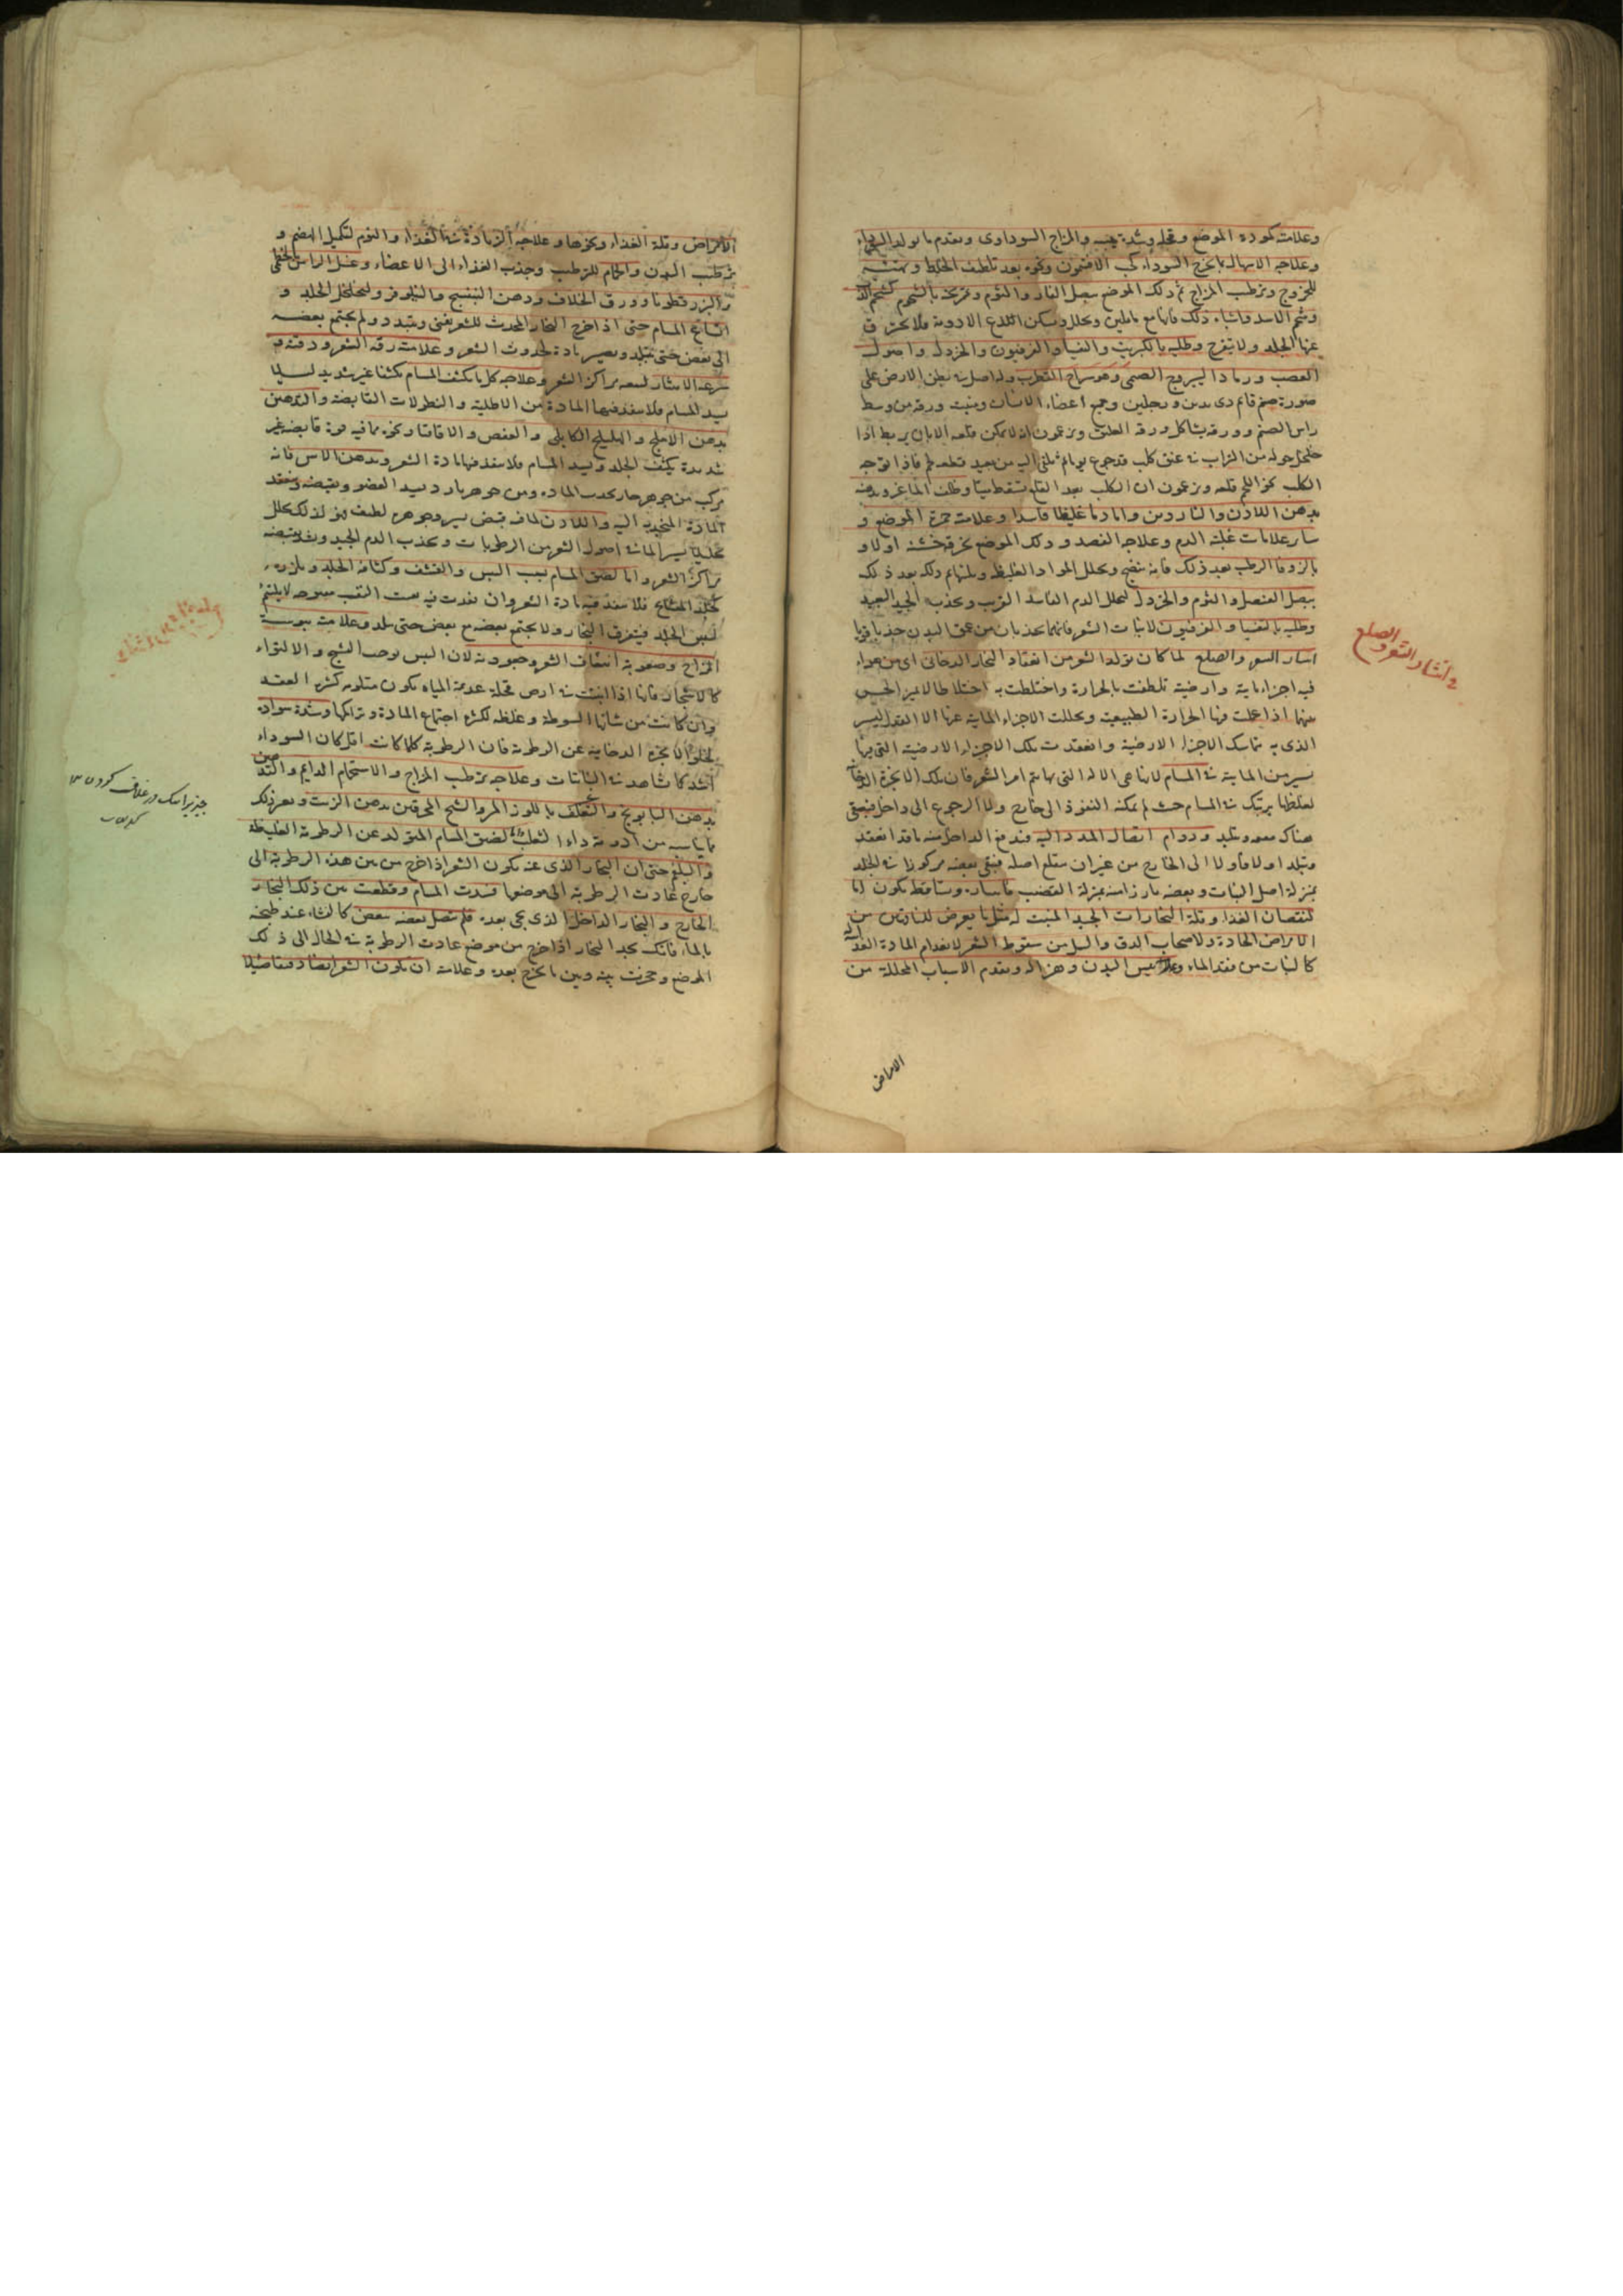 وعلامته كمودة الموضع وقحله وشدة يبسه والمزاج السوداوى وتقدم ما يولد السوداء
وعلاجه الاسهال بما يخرج السوداء كحب الافتيمون ونحوه بعد تلطيف الخلط وتهيئته
للخروج وترطيب المزاج ثم دلك الموضع ببصل الفار والثوم وتمريخه بالشحوم كشحم الدب
وشحم الاسد فانها مع ما تلين وتحلل وتسكن اللذع الادوية فلا يحترق
عنها الجلد ولا يتقرح وطليه بالكبريت والتفسيا والفرفيون والخردل واصول
القصب ورماد اليبروح الصنمى وهو سراج القطرب وله اصل فى بطن الارض على
صورة صنم قائم ذى يدين ورجلين وجميع اعضاء الانسان ومنبت ورقه من وسط
راس الصنم وورقه يشاكل ورق العليق ويزعمون انه لا يمكن قلعه الا بان يربط اذا
خلخل حوله من التراب فى عنق كلب قد جوع يوما ثم يلقى اليه من بعيد قطعة لحم فاذا توجه
الكلب نحو اللحم قلعه ويزعمون ان الكلب بعد القلع يسقط ميتا وظلف الماعز وبدهنه
بدهن اللادن والناردين واما دما غليظا فاسدا وعلامته حمرة الموضع و
ساير علامات غلبة الدم وعلاجه الفصد ودلك الموضع بخرقة خشنة اولا و
بالزوفا الرطب بعد ذلك فانه ينضج ويحلل المواد الغليظة ويلينها ثم دلكه بعد ذلك
ببصل العنصل والثوم والخردل ليحلل الدم الفاسد القريب ويجذب الجيد البعيد
وطليه بالتفسيا والفرفيون لانبات الشعر فانهما يجذبان من عمق البدن جذبا قويا
انتثار الشعر والصلع لما كان تولد الشعر من انعقاد البخار الدخانى اى من هواء
فيه اجزاء مايية وارضية تلطفت بالحرارة واختلطت به اختلاطا لا يميز الحس
بينهما اذا عملت فيها الحرارة الطبيعية وتحللت الاجزاء المايية عنها الا القدر اليسير
الذى به تماسك الاجزاء الارضية وانعقدت تلك الاجزاء الارضية التى بها
يسير من المايية فى المسام لانها هى الالة التى بها يتم امر الشعر فان تلك الابخرة الدخانية
لغلظها يرتبك فى المسام حيث لم يمكنه النفوذ الى خارج ولا الرجوع الى داخل فيبقى
هناك ويتلبد ودوام اتصال المدد اليه فيدفع الداخل منه ما قد انعقد
وتلبد اولا فاولا الى الخارج من غير ان ينقلع اصله فيبقى بعضه مركوزا فى الجلد
بمنزلة اصل النبات وبعضه بارزا منه بمنزلة القضيب فانتثاره وتساقطه يكون اما
لنقصان الغذاء وقلة البخارات الجيدة المنبت له مثل ما يعرض للناقهين من
الامراض الحادة ولاصحاب الدق والسل من سقوط الشعر لانعدام المادة الغذائية
كالنبات من فقد الماء وعلامته يبس البدن وهزاله وتقدم الاسباب المحللة من
الامراض
فى انتثار الشعر والصلع
الامراض وقلة الغذاء ونحوها وعلاجه الزيادة فى الغذاء والنوم لتكميل الهضم و
ترطيب البدن والحمام للترطيب وجذب الغذاء الى الاعضاء وغسل الراس بالخطمى
والبزرقطونا وورق الخلاف ودهن البنفسج والنيلوفر ولتخلخل الجلد و
اتساع المسام حتى اذا خرج البخار المحدث للشعر يفنى ويتبدد ولم يجتمع بعضه
الى بعض حتى يتلبد ويصير مادة لحدوث الشعر وعلامته رقة الشعر ودقته و
سرعة الانتثار لسعة مراكز الشعر وعلاجه كل ما يكثف المسام تكثيفا غير شديد ليلا
يسد المسام فلا ينفذ فيها المادة من الاطلية والنطولات القابضة والتدهين
بدهن الاملج والهليلج الكابلى والعفص والاقاقيا ونحوه مما فيه قوة قابضة غير
شديدة يكثف الجلد ويسد المسام فلا ينفذ فيها مادة الشعر وبدهن الاس فانه
مركب من جوهر حار يجذب المادة ومن جوهر بارد يسد العضو ويقبضه ويعقد
المادة المنجذبة اليه واللادن لما فيه قبض يسير وجوهره لطيف فهو لذلك يحلل
تحليلا يسيرا لما فى اصول الشعر من الرطوبات ويجذب الدم الجيد ويشد بقبضه
مراكز الشعر واما لضيق المسام بسبب اليبس والقشف وكثافة الجلد وتلززه
كجلد المشايخ فلا ينفذ فيه مادة الشعر وان نفذت فيه بقيت الثقب مفتوحة لا يلتئم
ليبس الجلد فيتفرق البخار ولا يجتمع بعضه مع بعض حتى يتلبد وعلامته يبوسة
المزاج وصعوبة انتتاف الشعر وجعودته لان اليبس يوجب التشنج والالتواء
كالاشجار فانها اذا انبتت فى ارض قحلة عديمة المياه تكون ملتوية كثيرة العقد
وان كانت من شانها السبوطة وغلظه لكثرة اجتماع المادة وتراكمها وشدة سواده
لخلو الابخرة الدخانية عن الرطوبة فان الرطوبة كلما كانت اقل كان السواد
اشد كما نشاهد فى النباتات وعلاجه ترطيب المزاج والاستحمام الدايم والتدهين
بدهن البابونج والتغلف باللوز المر والشيح المحرقين بدهن الزيت وبغير ذلك
مما يناسبه من ادوية داء الثعلب واما لضيق المسام المتولد عن الرطوبة الغليظة
والبلغم حتى ان البخار الذى عنه يكون الشعر اذا خرج من بين هذه الرطوبة الى
خارج عادت الرطوبة الى موضعها فسدت المسام وقطعت بين ذلك البخار
الخارج والبخار الداخل الذى يجى بعده فلم يتصل بعضه ببعض كالنشاء عند طبخه
بالماء فانك تجد البخار اذا خرج من موضع عادت الرطوبة فى الحال الى ذلك
الموضع وحجزت بينه وبين ما يخرج بعده وعلامته ان يكون الشعر ايضا دقيقا ضئيلا